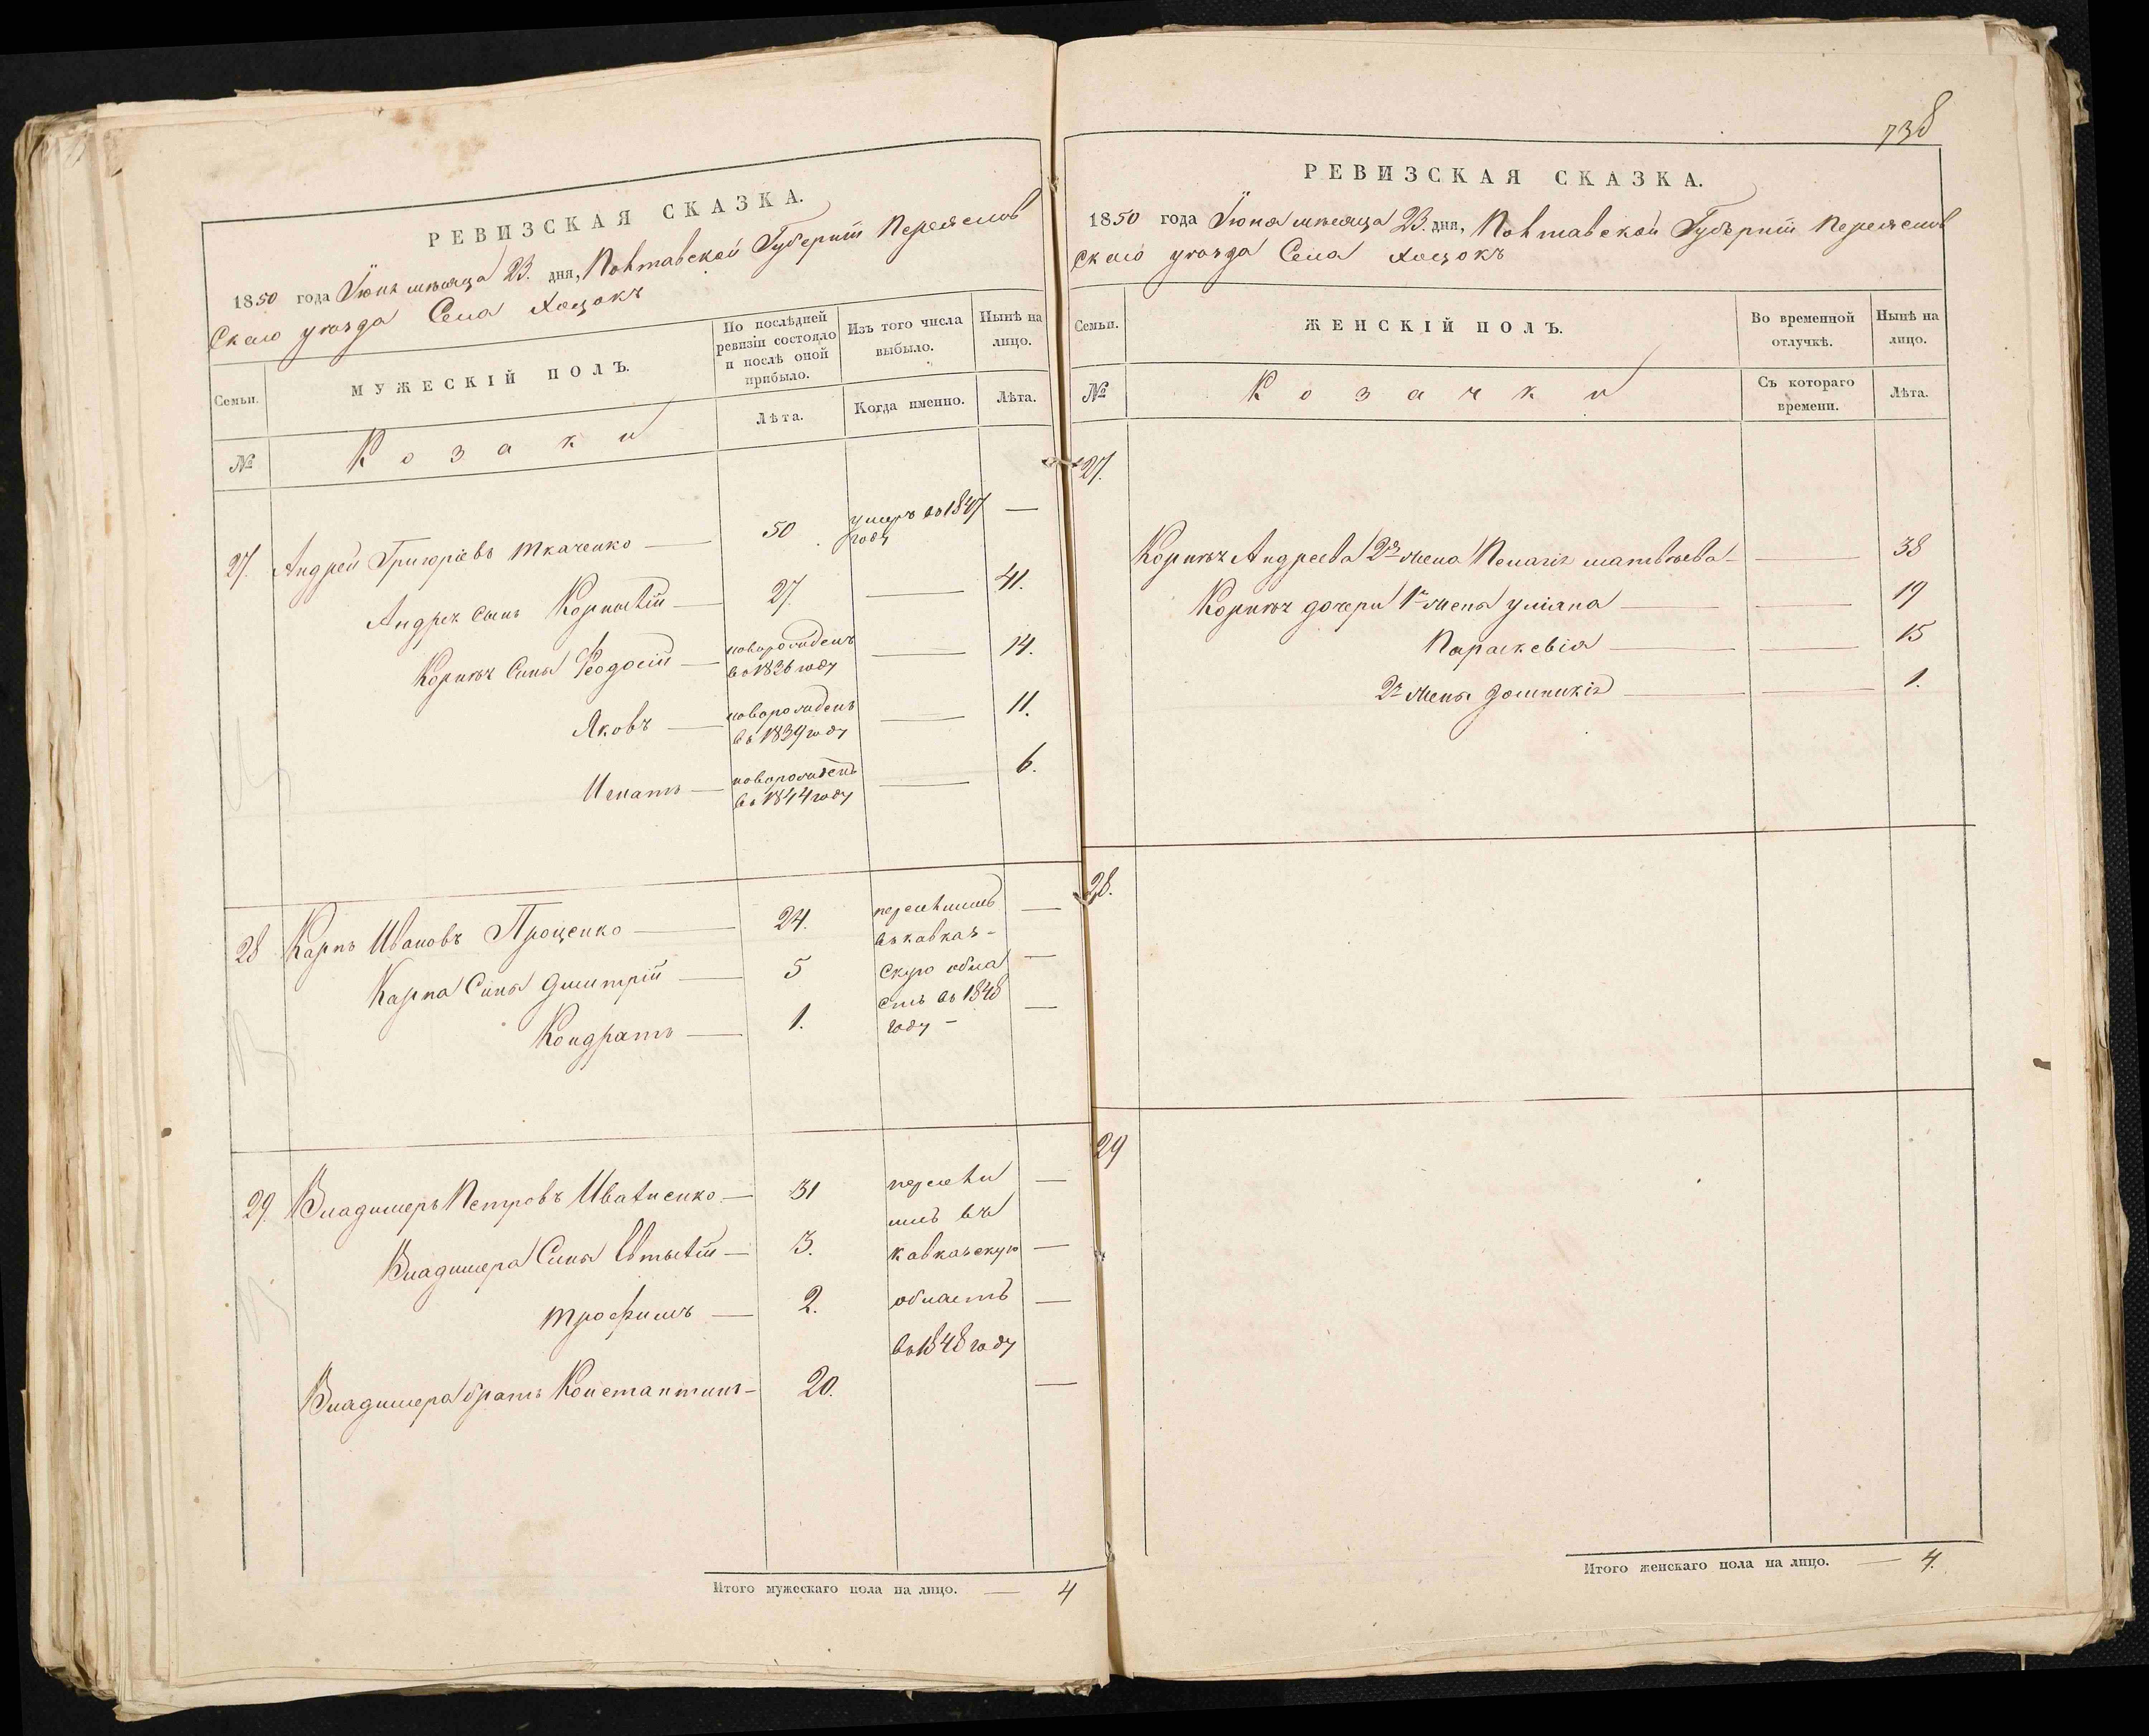 РЕВИЗСКАЯ СКАЗКА.
1850 года Іюня мѣсяца 23. дня, Полтавской Губерніи Переяслов
скаго уѣзда Села Хоцокъ
Семьи.
МУЖЕСКІЙ ПОЛЪ.
По послѣдней ревизіи состояло и послѣ оной прибыло.
Изъ того числа выбыло.
Нынѣ на лицо.
№
Козаки
Лѣта.
Когда именно.
Лѣта.
27. Андрей Григоріевъ Ткаченко — 50 умеръ въ 1847 году —
Андрея сынъ Корнилій — 27. — 41.
Корнѣя Сыны Феодосій — новорожденъ въ 1836 году — 14.
Яковъ — новорожденъ въ 1839 году — 11.
Игнатъ — новорожденъ въ 1844 году — 6.
28 Карпъ Ивановъ Проценко — 24. переселился —
въ кавказ-
Карпа Сыны Дмитрій — 5 скую обла —
сть въ 1848
Кондратъ — 1. году — —
29. Владимеръ Петровъ Иваненко — 31 пересели —
лись въ
Владимера Сыны Евтыхій — 3. кавказскую —
Трофимъ — 2. область —
въ 1848 году
Владимера братъ Константинъ — 20. —
Итого мужескаго пола на лицо. — 4
738
РЕВИЗСКАЯ СКАЗКА.
1850 года Іюня мѣсяца 23. дня, Полтавской Губерніи Переяслов
скаго уѣзда Села Хоцокъ
Семьи.
ЖЕНСКІЙ ПОЛЪ.
Во временной отлучкѣ.
Нынѣ на лицо.
№
Козачки
Съ котораго времени.
Лѣта.
27.
Корнѣя Андреева 2я жена Пелагія Матвѣева — — 38
Корнѣя дочери 1й жены Уліана — — 19
Параскевія — — 15
2й жены Домникія — — 1.
28.
29
Итого женскаго пола на лицо. — 4.